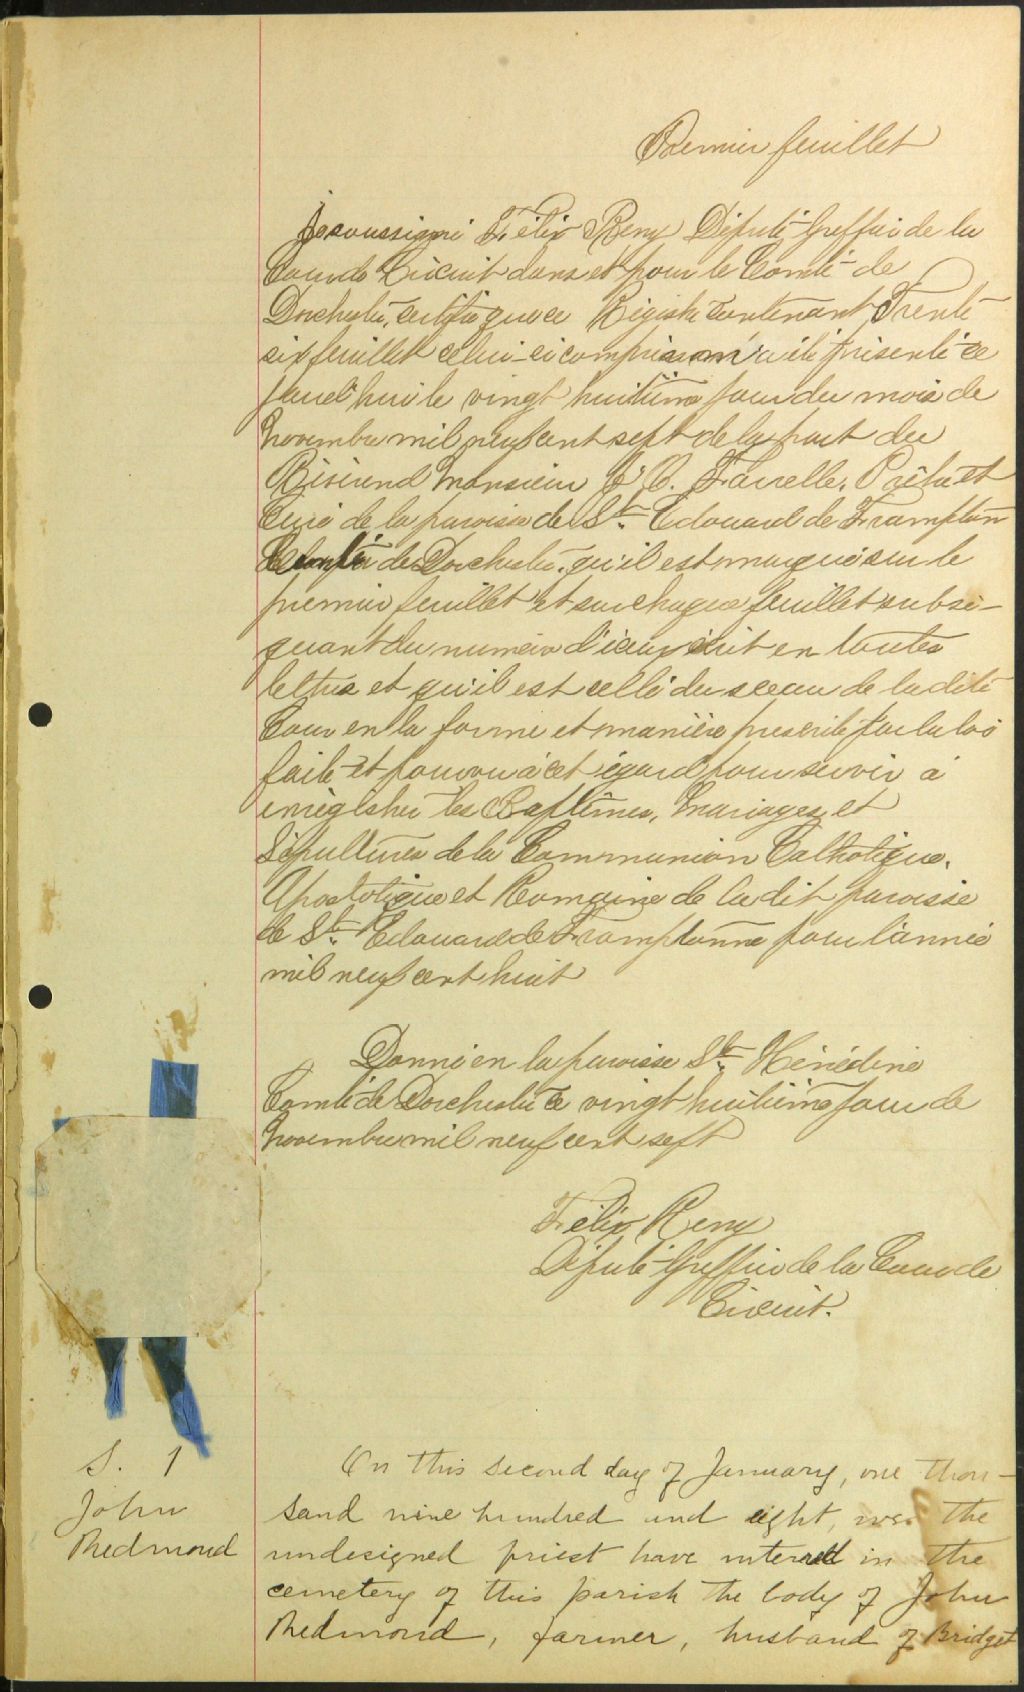 Premier feuillet
Je soussigné Félix Remy Député-Greffier de la
Cour de Circuit dans et pour le Comté de
Dorchester, certifie que ce Régistre contenant Trente
six feuillet celui-ci compris m'a été présenté ce
jourd'hui le vingt huitième jour du mois de
Novembre mil neuf cent sept de la part du
Révérend Monsieur J. O. Farrelle, Prêtre et
Curé de la paroisse de St. Edouard de Frampton
Comté de Dorchester, qu'il est marqué sur le
premier feuillet et sur chaque feuillet subsé-
quant du numéro d'iceux écrit en toutes
lettres et qu'il est cellé du sceau de la dite
Cour en la forme et manière prescrite par la loi
faite et pourvu à cet égard pour servir à
enrégistrer les Baptêmes, Mariages et
Sépultures de la Communion Catholique,
Apostolique et Romaine de la dit paroisse
de St. Edouard de Framptonne pour l'année
mil neuf cent huit
Donné en la paroisse Ste. Hénédine
Comté de Dorchester ce vingt huitième jour de
Novembre mil neuf cent sept
Félix Remy
Député-Greffier de la Cour de
Circuit.
S. 1
John
Redmond
On this second day of January, one thou-
sand nine hundred and eight, we the
undesigned priest have interred in the
cemetery of this parish the body of John
Redmond, farmer, husband of Bridget